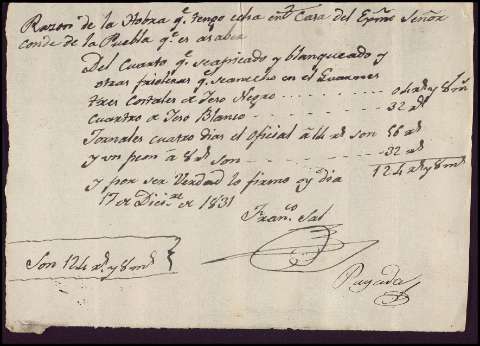 Razon de la Hobra q.e tengo echa en la Casa del Exmo Señor
Conde de la Puebla q.e es asaber
Del Cuarto q.e seapicado y blanqueado y
otras frioleras q.e seanecho en el
tres Costales de Jeso Negro . . . . . . . 04 r.s y 8 m.s
Cuartro de Jeso Blanco . . . . . . . 32 r.s
Jornales cuatro dias el oficial á 14 r.s son 56 r.s
y un peon a 8 r.s son . . . . . . . 32 r.s
y por ser Verdad lo firmo oy dia 124 r.s y 8 m.s
17 de Dici.re de 1831
Fran.co Sal
Son 124 r.s y 8 m.s
Pagada